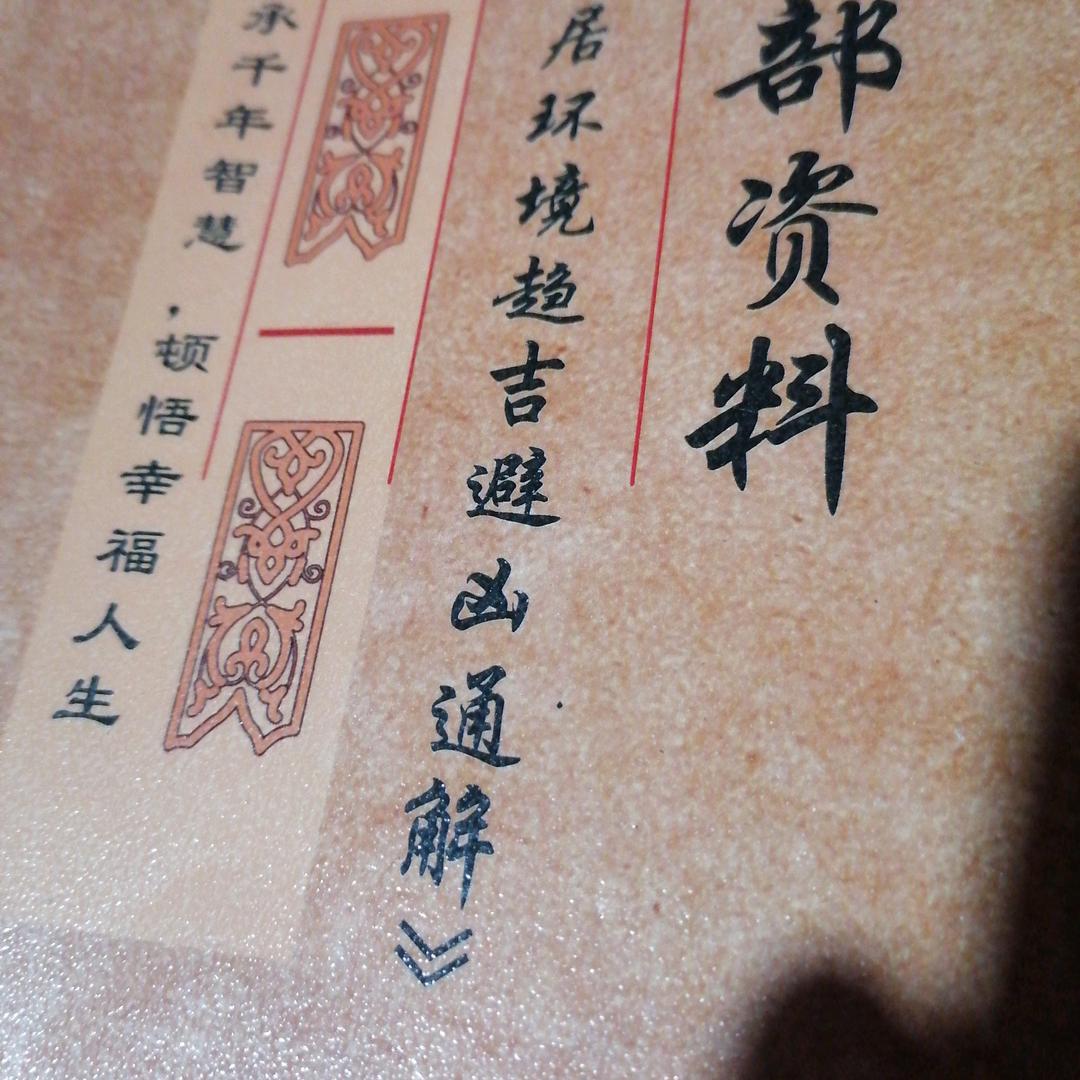 部资料
居环境趋吉避凶通解》
承千年智慧，顿悟幸福人生